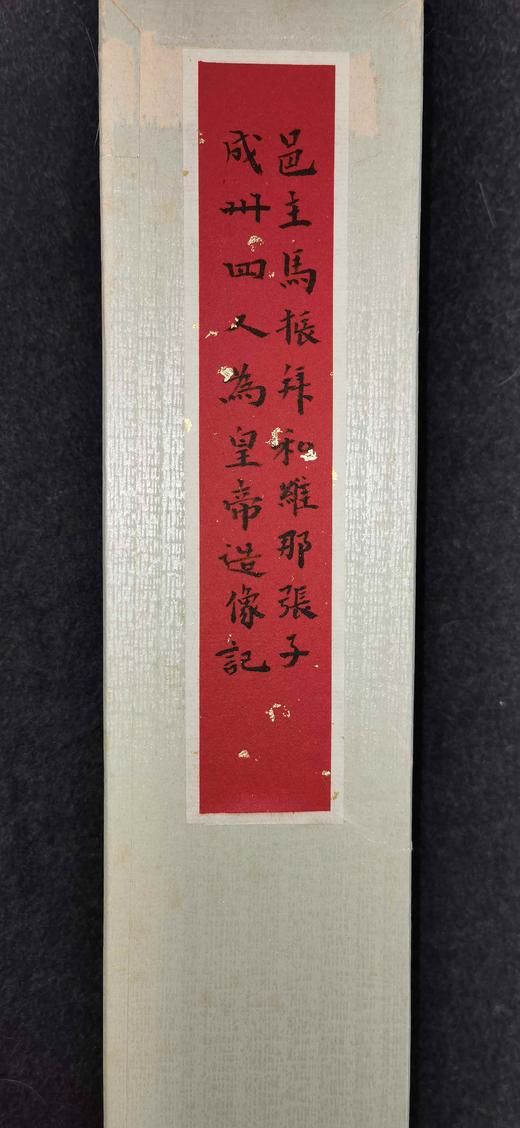 邑主馬振拜和維那張子
成卅四人為皇帝造像記